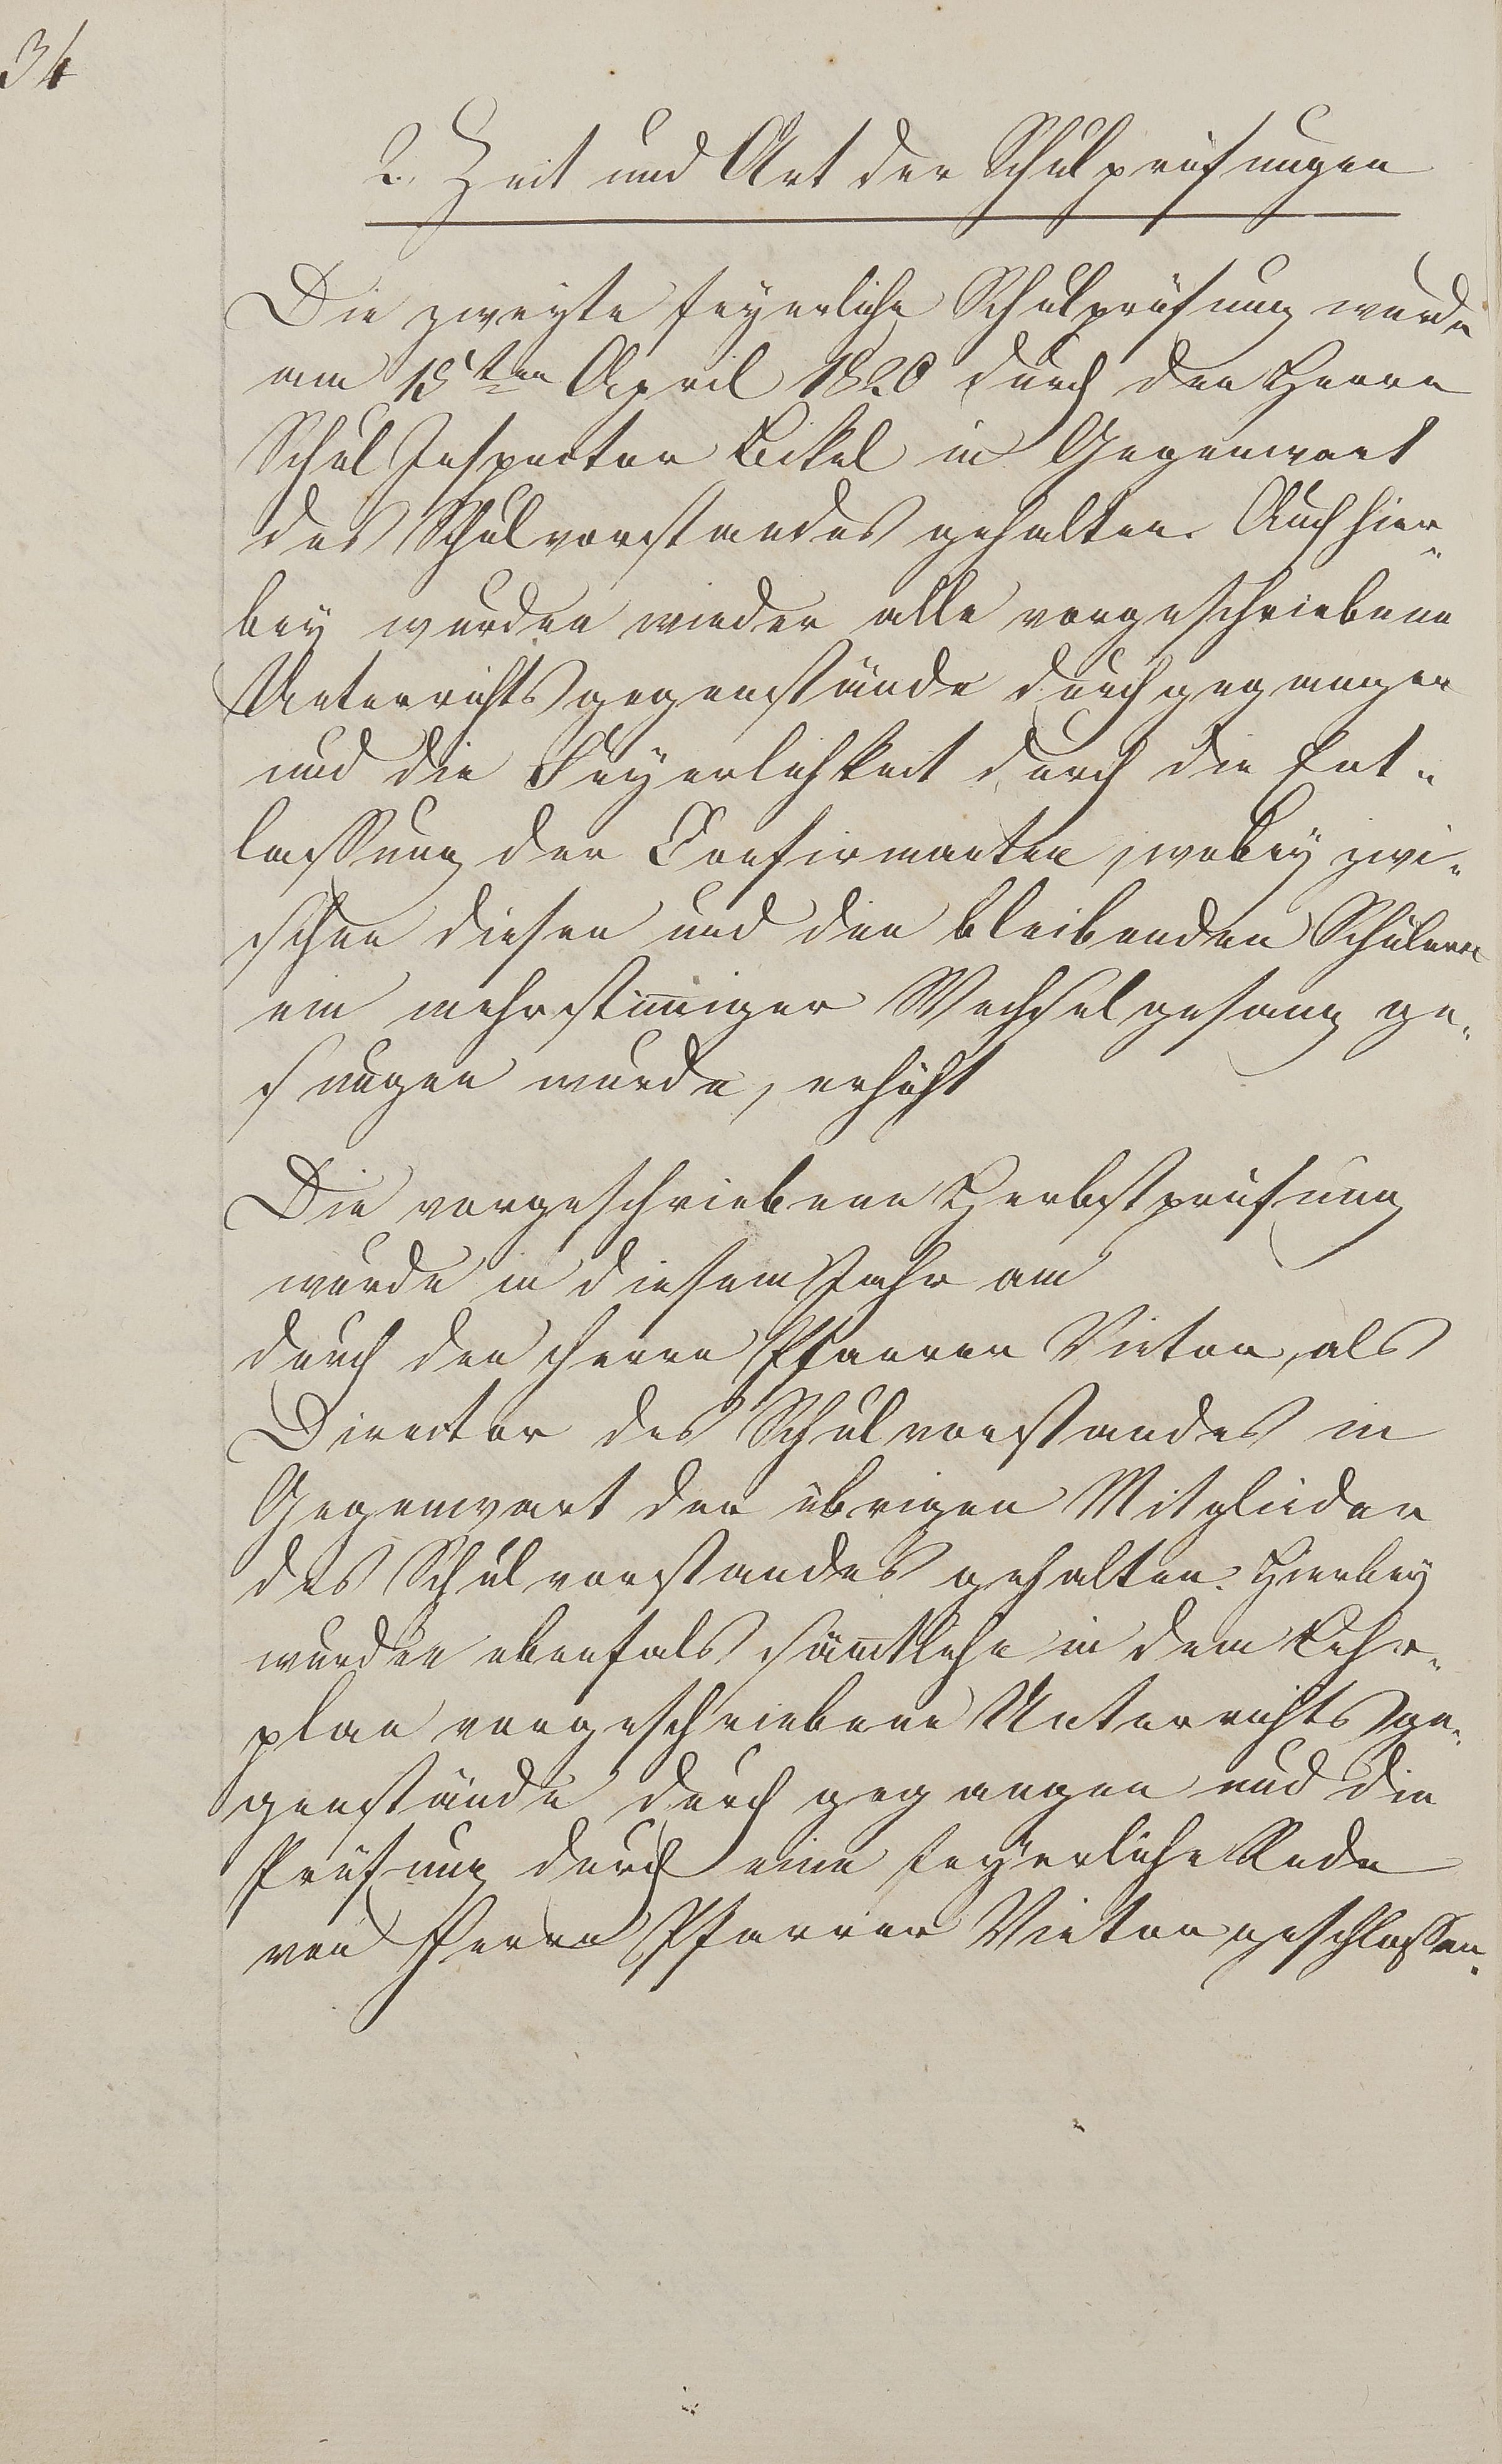 34
2. Zeit und Art der Schulprüfungen
Die zweyte feyerliche Schulprüfung wurde
am 15ten April 1820 durch den Herrn
Schul Inspector Bikel in Gegenwart
des Schulvorstandes gehalten. Auch hier„
bey wurden wieder alle vorgeschriebene
Unterrichtsgegenstände durchgegangen
und die Feyerlichkeit durch die Ent„
lassung der Confirmanten, wobey zwi„
schen diesen und den bleibenden Schülern
ein mehrstim̄iger Wechselgesang ge„
sungen wurde, erhöht
Die vorgeschriebene Herbstprüfung
wurde in diesem Jahr am
durch den Herrn Pfarrer Vietor, als
Director des Schulvorstandes in
Gegenwart der übrigen Mitglieder
des Schulvorstandes gehalten. Hierbey
wurden ebenfals säm̄tliche in dem Lehr„
plan vorgeschriebene Unterrichtsge„
genstände durch gegangen und die
Prüfung durch eine feyerliche Rede
von Herrn Pfarrer Vietor geschlossen.